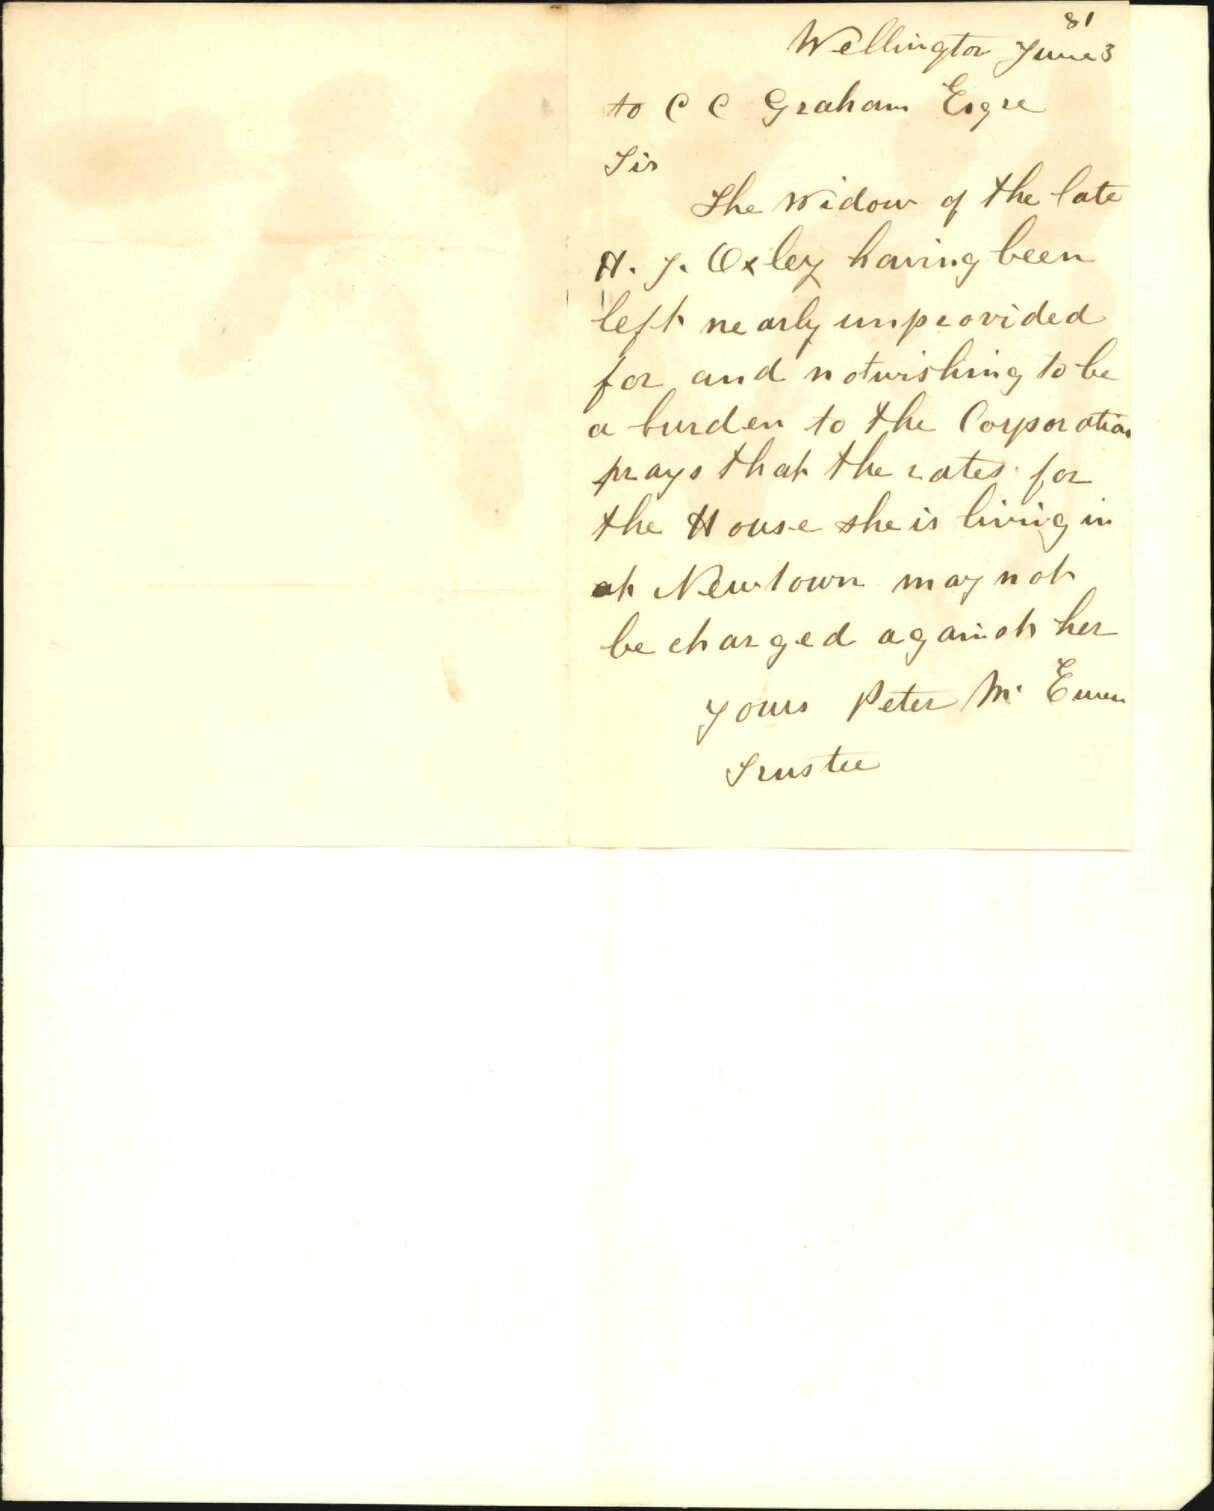 81
Wellington June 3
to C C Graham Esqre
Sir
The Widow of the late
H. J. Oxley having been
left nearly unprovided
for and not wishing to be
a burden to the Corporation
prays that the rates for
the House she is living in
at Newtown may not
be charged against her
yours Peter Mc Ewen
Trustee